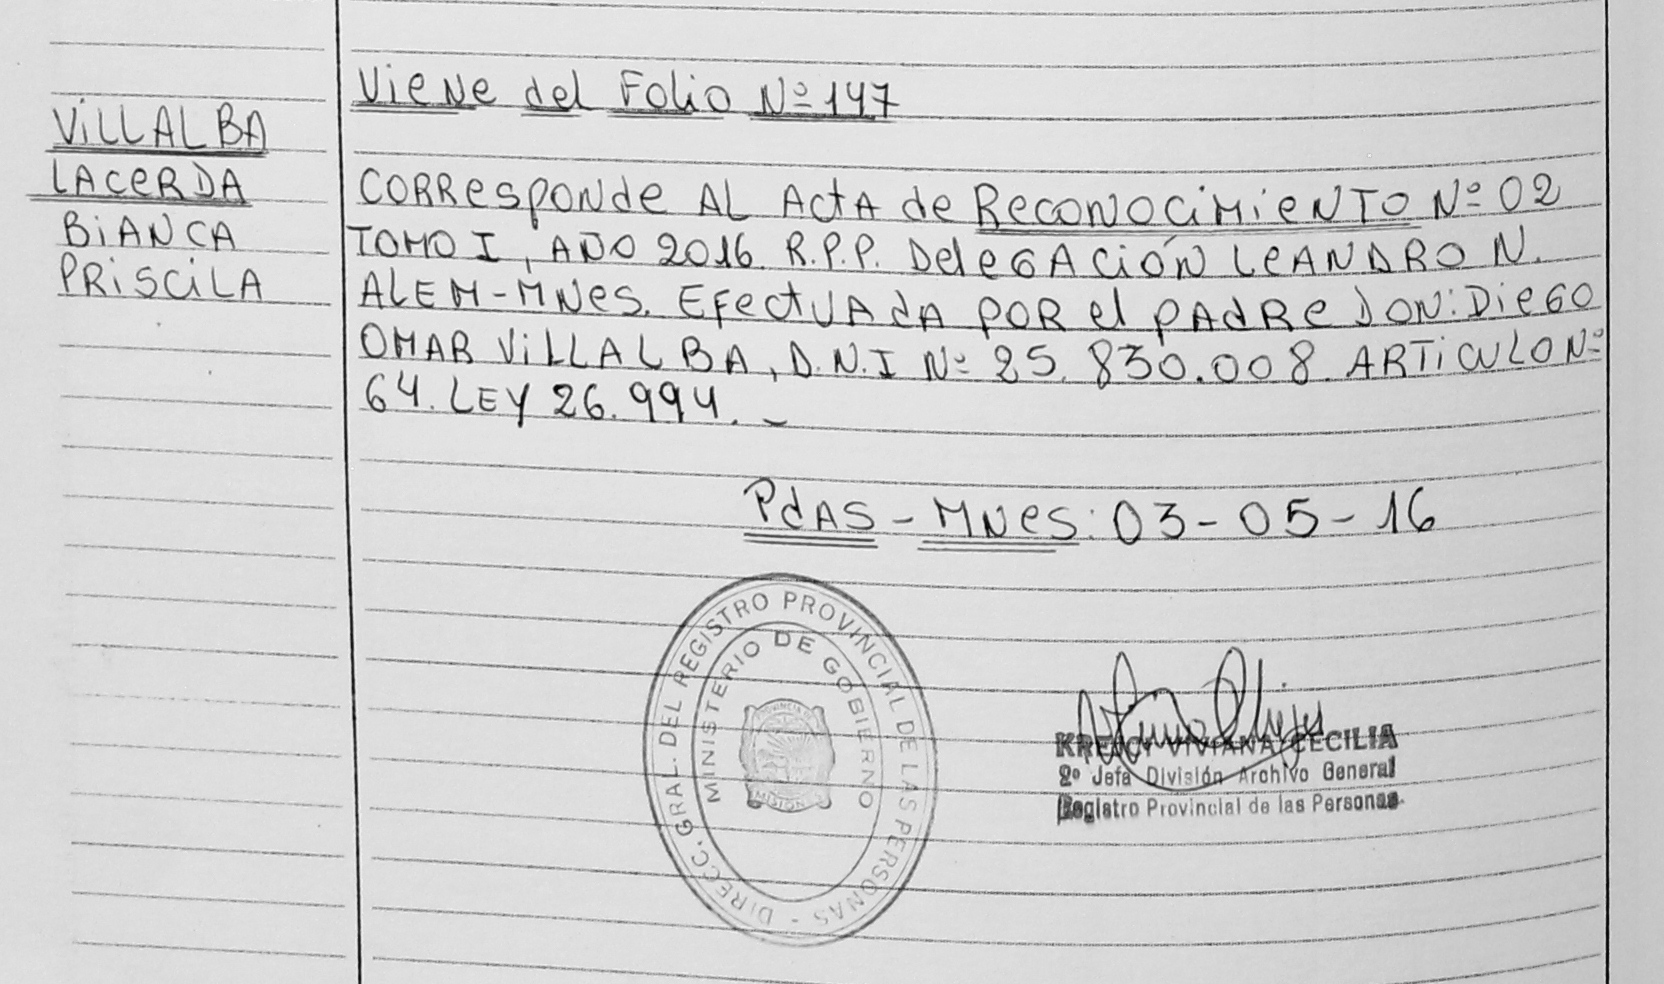 Viene del Folio Nº 147
VILLALBA
LACERDA
BIANCA
PRISCILA
CORResponde AL ActA de Reconocimiento Nº 02
TOMO I, AÑO 2016. R.P.P. DeleGACión LeANDRO N.
ALEM-MNes. EfectUAdA POR el PAdRe DON: Diego
OMAR VILLALBA, D.N.I Nº 25.830.008. ARTICULO Nº
64. LEY 26.994.
PdAS - MNes: 03-05-16
DIRECC. GRAL. DEL REGISTRO PROVINCIAL DE LAS PERSONAS -
MINISTERIO DE GOBIERNO
PROVINCIA DE
MISIONES
VIVIANA CECILIA
2º Jefa División Archivo General
Registro Provincial de las Personas